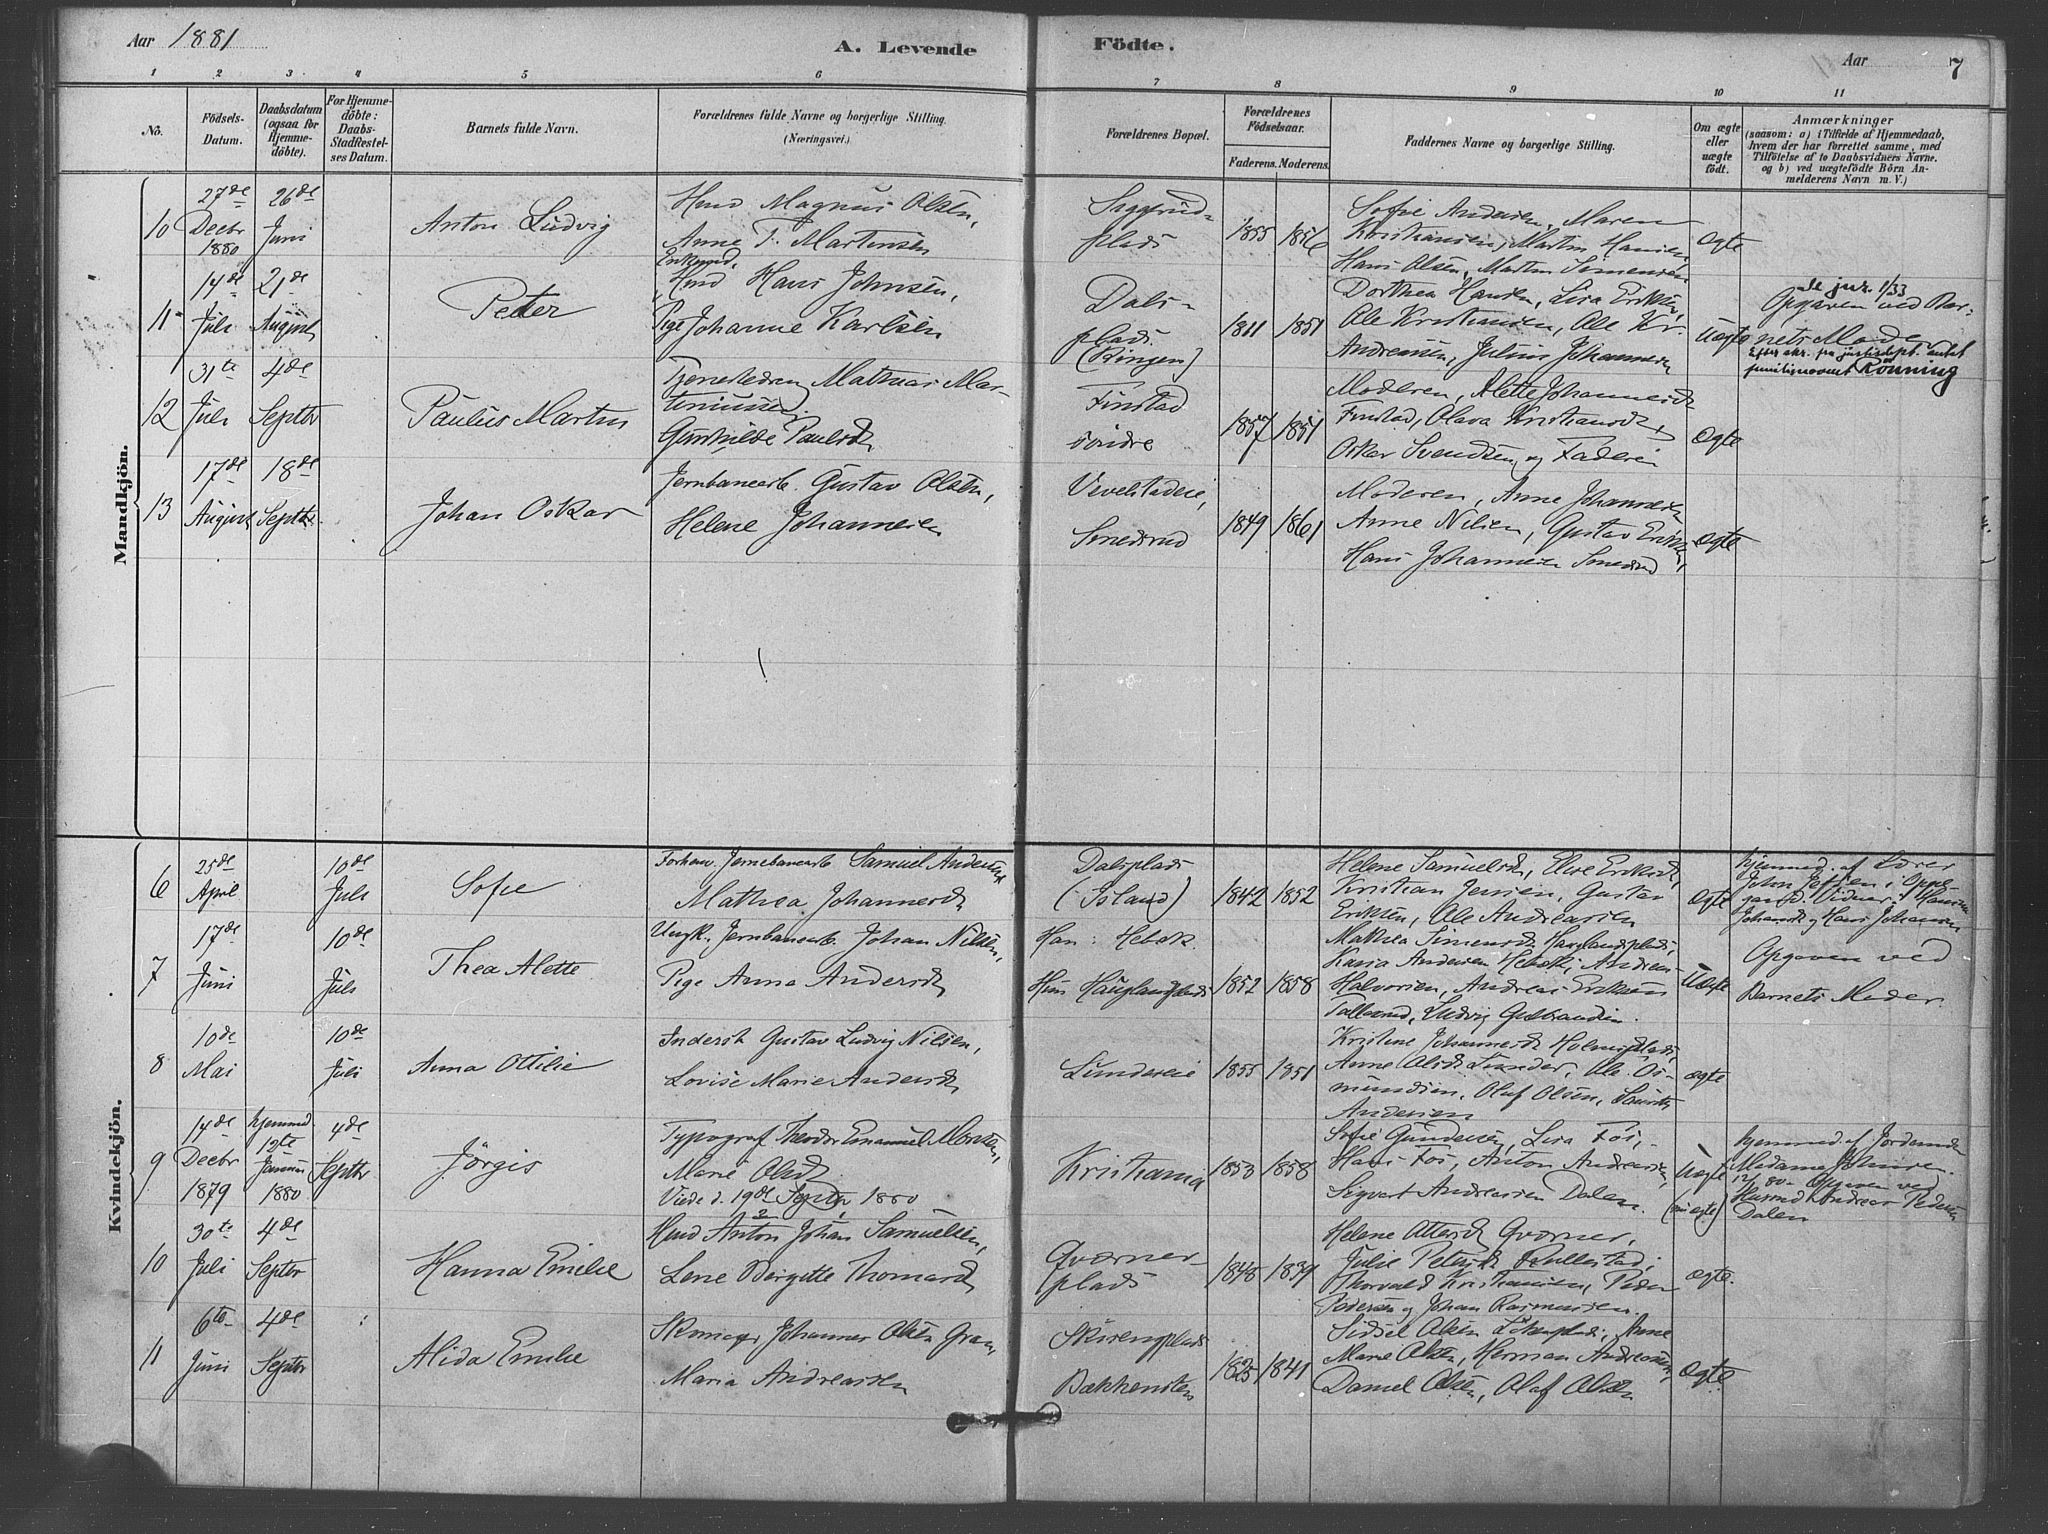 Aar 1881
A. Levende Födte.
Aar
7
1 2 3 4 5 6 7 8 9 10 11
No.
Födsels-
Datum.
Daabsdatum
(ogsaa for
Hjemme-
döbte).
For Hjemme-
döbte:
Daabs-
Stadfæstel-
ses Datum.
Barnets fulde Navn.
Forældrenes fulde Navne og borgerlige Stilling.
(Næringsvei.)
Forældrenes Bopæl.
Forældrenes
Födselsaar.
Faderens. Moderens.
Faddernes Navne og borgerlige Stilling.
Om ægte
eller
uægte
födt.
Anmærkninger
(saasom: a) i Tilfælde af Hjemmedaab,
hvem der har forrettet samme, med
Tilföielse af to Daabsvidners Navne.
og b) ved uægtefödte Börn An-
melderens Navn m. V.)
Mandkjön.
10
27de
Decbr
1880
26de
Juni
Anton Ludvig
Husmd Magnus Olsen,
Anne T. Martinsen
plads
1855 1856
Sofie Andersen, Maren
Kristiansen, Martin Hansen
Hans Olsen, Martin Simensen
Ægte
11
14de
Juli
21de
August
Petter
Enkemd,
Hmd Hans Johnsen,
Pige Johanne Karlsen
Dals-
plads.
(Ringen)
1811 1851
Dorthea Hansen, Lisa Eriksen,
Ole Kristiansen, Ole Kr.
Andreassen, Julius Johannesen
Uægte
Se jnr. 1/33
Opgaven ved Bar-
nets Moder
Efter skr. fra justisdept. antat
familienavnet Rönning
12
31te
Juli
4de
Septbr
Paulus Martin
Mathias Mar-
tiniussen.
Gunhilde Paulsdt
Finstad
söndre
1857 1851
Moderen, Alette Johannesdt
Finstad, Olava Kristiansdt,
Oskar Svendsen og Faderen
Ægte
13
17de
August
18de
Septbr
Johan Oskar
Jernbanearb. Gustav Olsen,
Helene Johannesen
Vevelstadeie,
Smedsrud
1849 1861
Moderen, Anne Johannesen
Anne Nilsen, Gustav Eriksen,
Hans Johannesen Smedsrud
Ægte
Kvindekjön.
6
25de
April
10de
Juli
Sofie
Forhen. Jernebanearb Samuel Andersen
Mathea Johannesdt
Dalsplads
(Island)
1842 1852
Helene Samuelsdt, Elise Eriksdt,
Kristian Jensen, Gustav
Eriksen, Ole Andreassen
Ægte
hjemmed. af Lærer
Johan Oppe-
gaard. Vidner:
Johansdt og Hans Johansen
7
17de
Juni
10de
Juli
Thea Alette
Ungk. Jernbanearb. Johan Nilsen,
Pige Anna Andersdt
Han: Hebek.
Hun Hauglandplads
1852 1858
Mathea Simensdt Hauglandsplads,
Karia Andersen Hebek, Andreas
Halvorsen, Andreas Eriksen
Tallerud, Ludvig Gulbrandsen.
Uægte
Opgaven ved
Barnets Moder.
8
10de
Mai
10de
Juli
Anna Ottilie
Inderst Gustav Ludvig Nilsen,
Lovise Marie Andersdt
Lundereie
1855 1851
Kristine Johannesdt Holmsplads,
Anne Olsdt Lunder, Ole Os-
mundsen, Oluf Olsen, Laurits
Andersen
ægte
9
14de
Decbr
1879
hjemmed
12te
Januar
1880
4de
Septbr
Jörgis
Typograf Theodor Emanuel
Marie Olsdt
Viede d. 19de Septbr, 1880
Kristiania
1853 1858
Sofie Gundersen, Lisa Fos,
Hans Fos, Anton Andreassen,
Sigvart Andreassen Dalen.
Uægte
(nu ægte)
hjemmed. af Jordemoder
Madame Johnsen.
12/1 80. Opgaven ved
Husmd Andreas Pedersen
Dalen
10
30te
Juli
4de
Septbr
Hanna Emilie
Hmd Anton Johan Samuelsen,
Lene Birgitte Thomasdt
Qværner-
plads
1848 1839
Helene Ottersdt Qværner,
Julie Petersdt Fullestad,
Thorvald Kristiansen, Peder
Pedersen og Johan Rasmussen.
ægte.
11
6te
Juni
4de
Septbr
Alida Emilie
Skomager Johannes Olsen Gran,
Maria Andreassen
Skirengplads
Bakkensten
1825 1841
Sidsel Olsen Anne
Marie Olsen, Herman Andreassen,
Daniel Olsen, Olaf Olsen
Ægte.